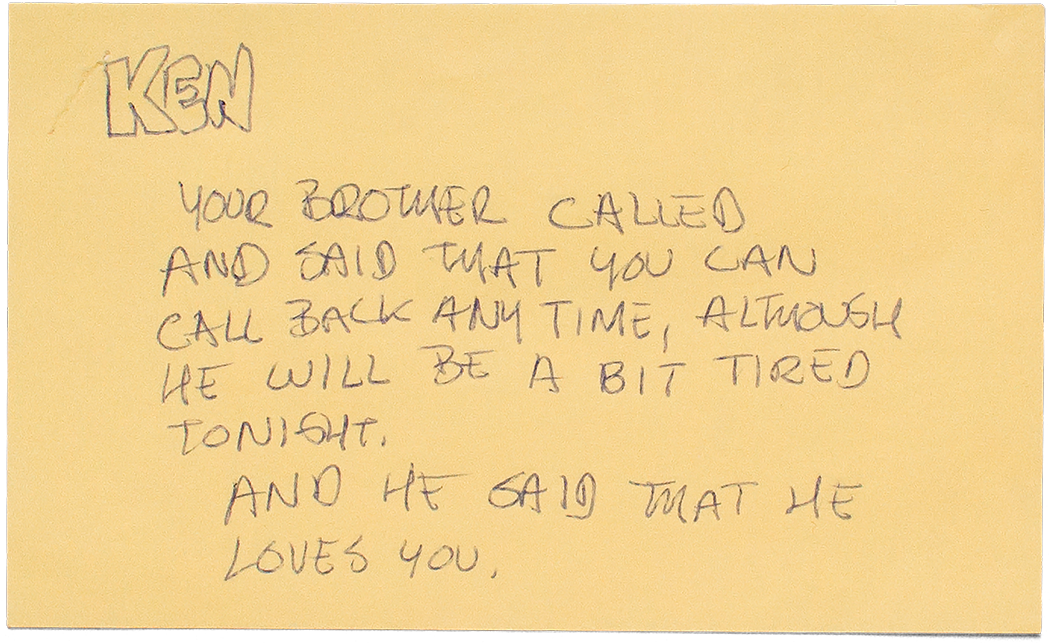 KEN
YOUR BROTHER CALLED
AND SAID THAT YOU CAN
CALL BACK ANY TIME, ALTHOUGH
HE WILL BE A BIT TIRED
TONIGHT.
AND HE SAID THAT HE
LOVES YOU.